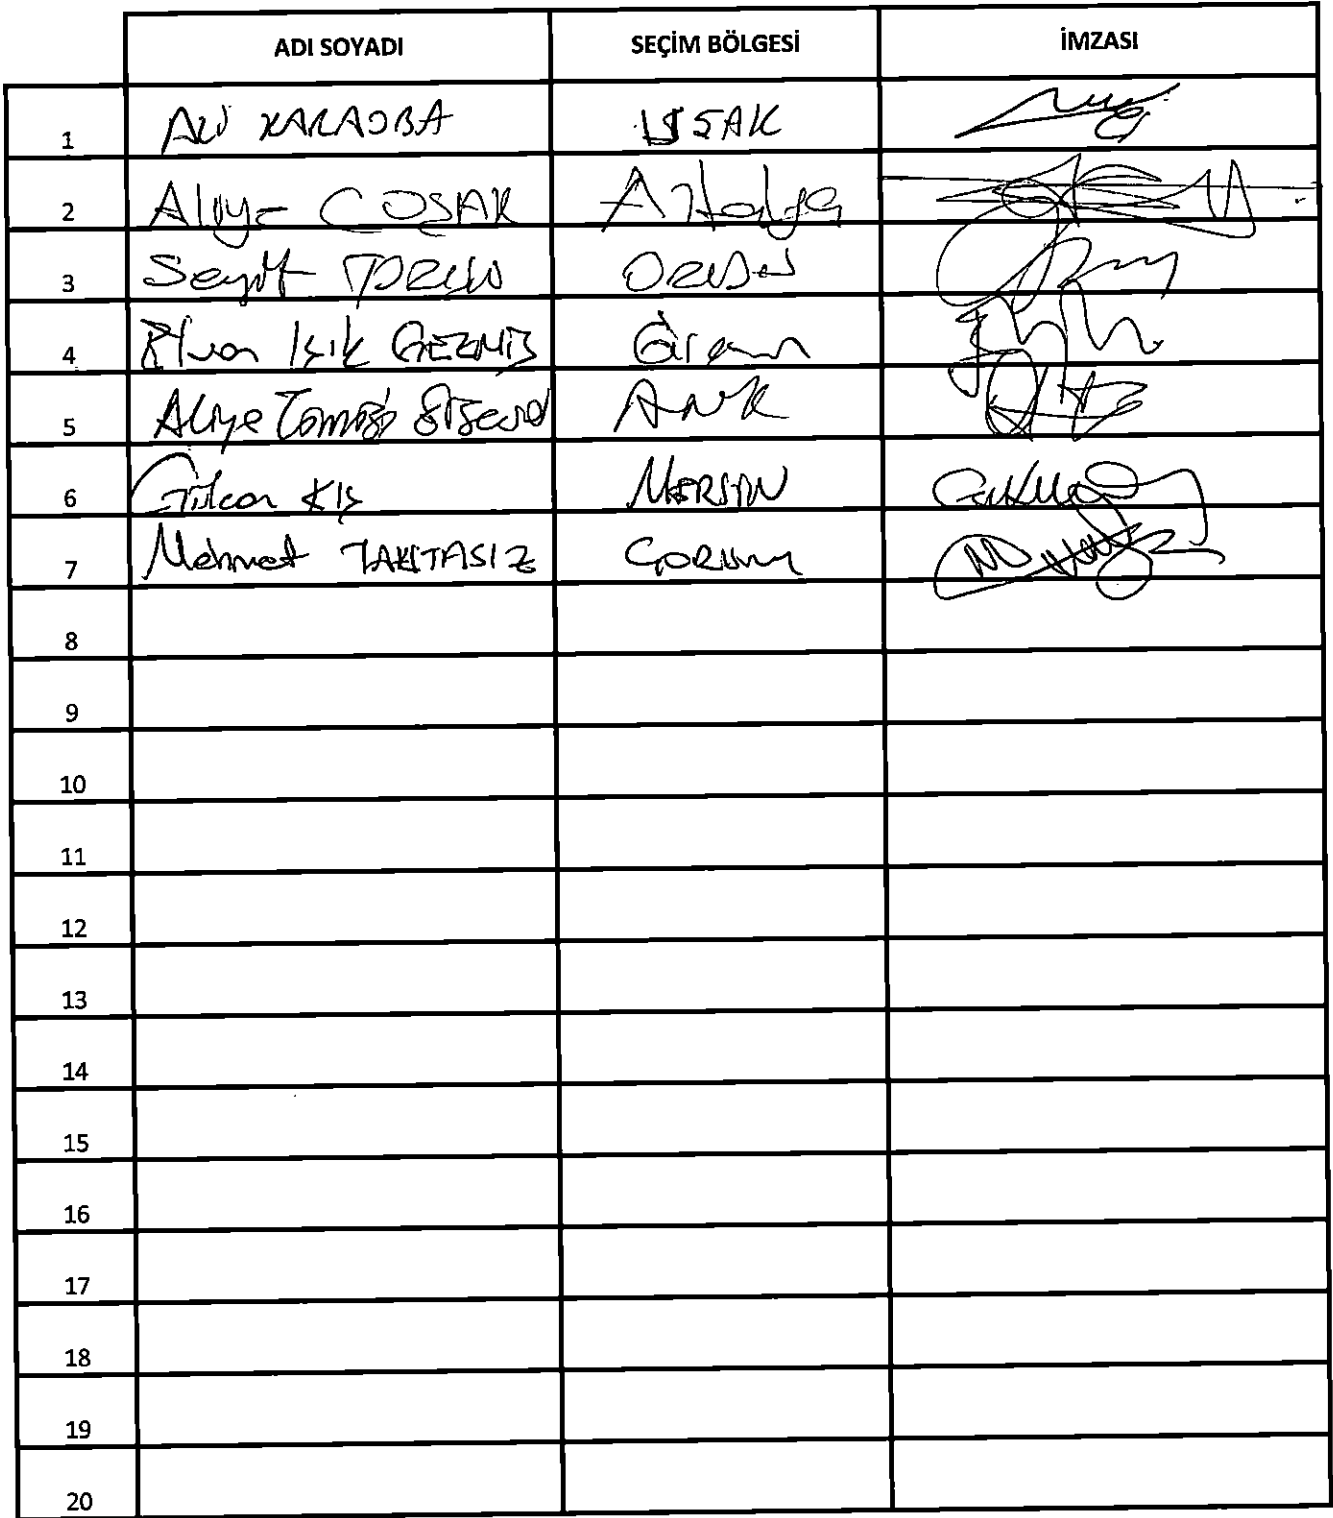 ADI SOYADI SEÇİM BÖLGESİ İMZASI
1 Ali KARAOBA UŞAK
2 Aliye COŞAR Antalya
3 Seyit TORUN ORDU
4 Elvan Işık GEZMİŞ Giresun
5 Aliye Timisi Ersever ANK
6 Gülcan KIŞ MERSİN
7 Mehmet TAHTASIZ ÇORUM
8
9
10
11
12
13
14
15
16
17
18
19
20